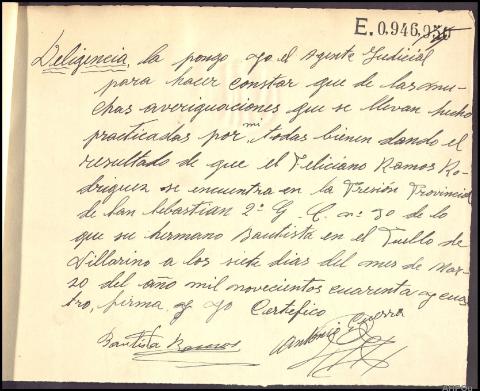 E.0.946.950
Deligencia, la pongo yo el Agente Judicial
para hacer constar que de las mu-
chas averiguaciones que se llevan hecho
practicadas por mi todas bienen dando el
resultado de que el Feliciano Ramos Ro-
driguez se encuentra en la Presión Provincial
de San Sebastian 2º G. C. nº 30 de lo
que su hermano Bautista en el Puello de
Villarino a los siete dias del mes de Mar-
zo del año mil novecientos cuarenta y cua-
tro, firma y yo Certefico
Bautista Ramos
Antonio Guerra